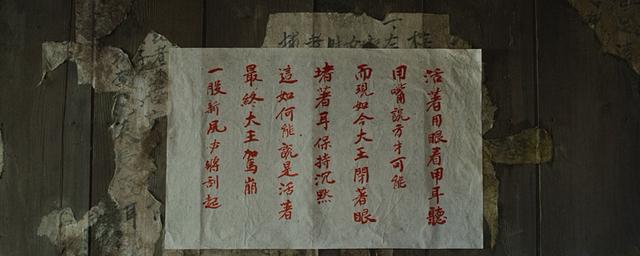 活著用眼看用耳聽
用嘴說方才可能
而現如今大王閉著眼
堵著耳保持沉默
這如何能說是活著
最終大王駕崩
一股新風才將刮起